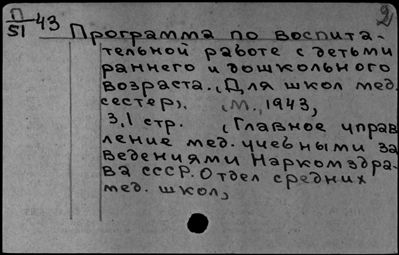 П/51 43
2
Программа по воспита-
тельной работе с детьми
раннего и дошкольного
возраста. (Для школ мед.
сестер). М., 1943,
3,1 стр. (Главное управ
ление мед. учебными за
ведениями Наркомздра-
ва СССР. Отдел средних
мед. школ,